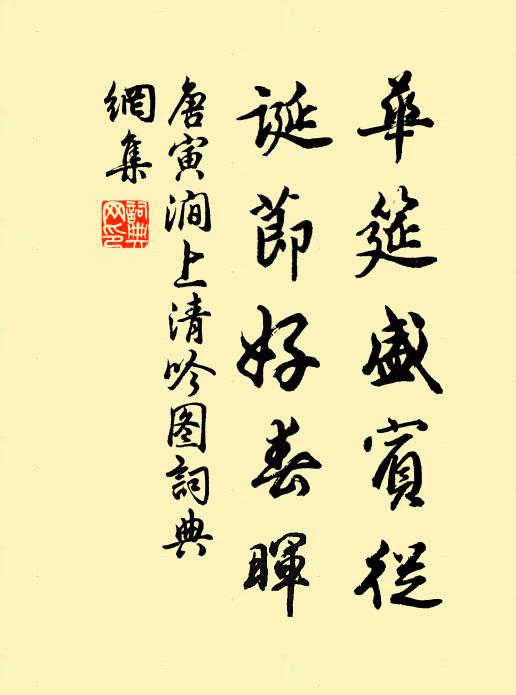 華筵盛賓從
誕節好春暉
唐寅澗上清吟图詞典
網集
詞典網印